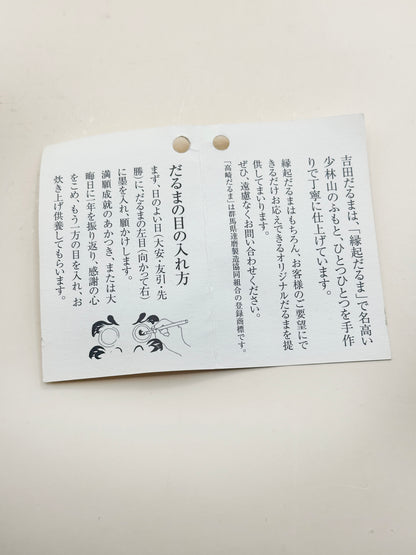 吉田だるまは、「縁起だるま」で名高い
少林山のふもと、ひとつひとつを手作
りで丁寧に仕上げています。
縁起だるまはもちろん、お客様のご要望にで
きるだけお応えできるオリジナルだるまを提
供してまいります。
ぜひ、遠慮なくお問い合わせください。
「高崎だるま」は群馬県達磨製造協同組合の登録商標です。
だるまの目の入れ方
まず、日のよい日（大安・友引・先
勝）に、だるまの左目（向かって右）
に墨を入れ、願かけします。
満願成就のあかつき、または大
晦日に一年を振り返り、感謝の心
をこめ、もう一方の目を入れ、お
炊き上げ供養してもらいます。